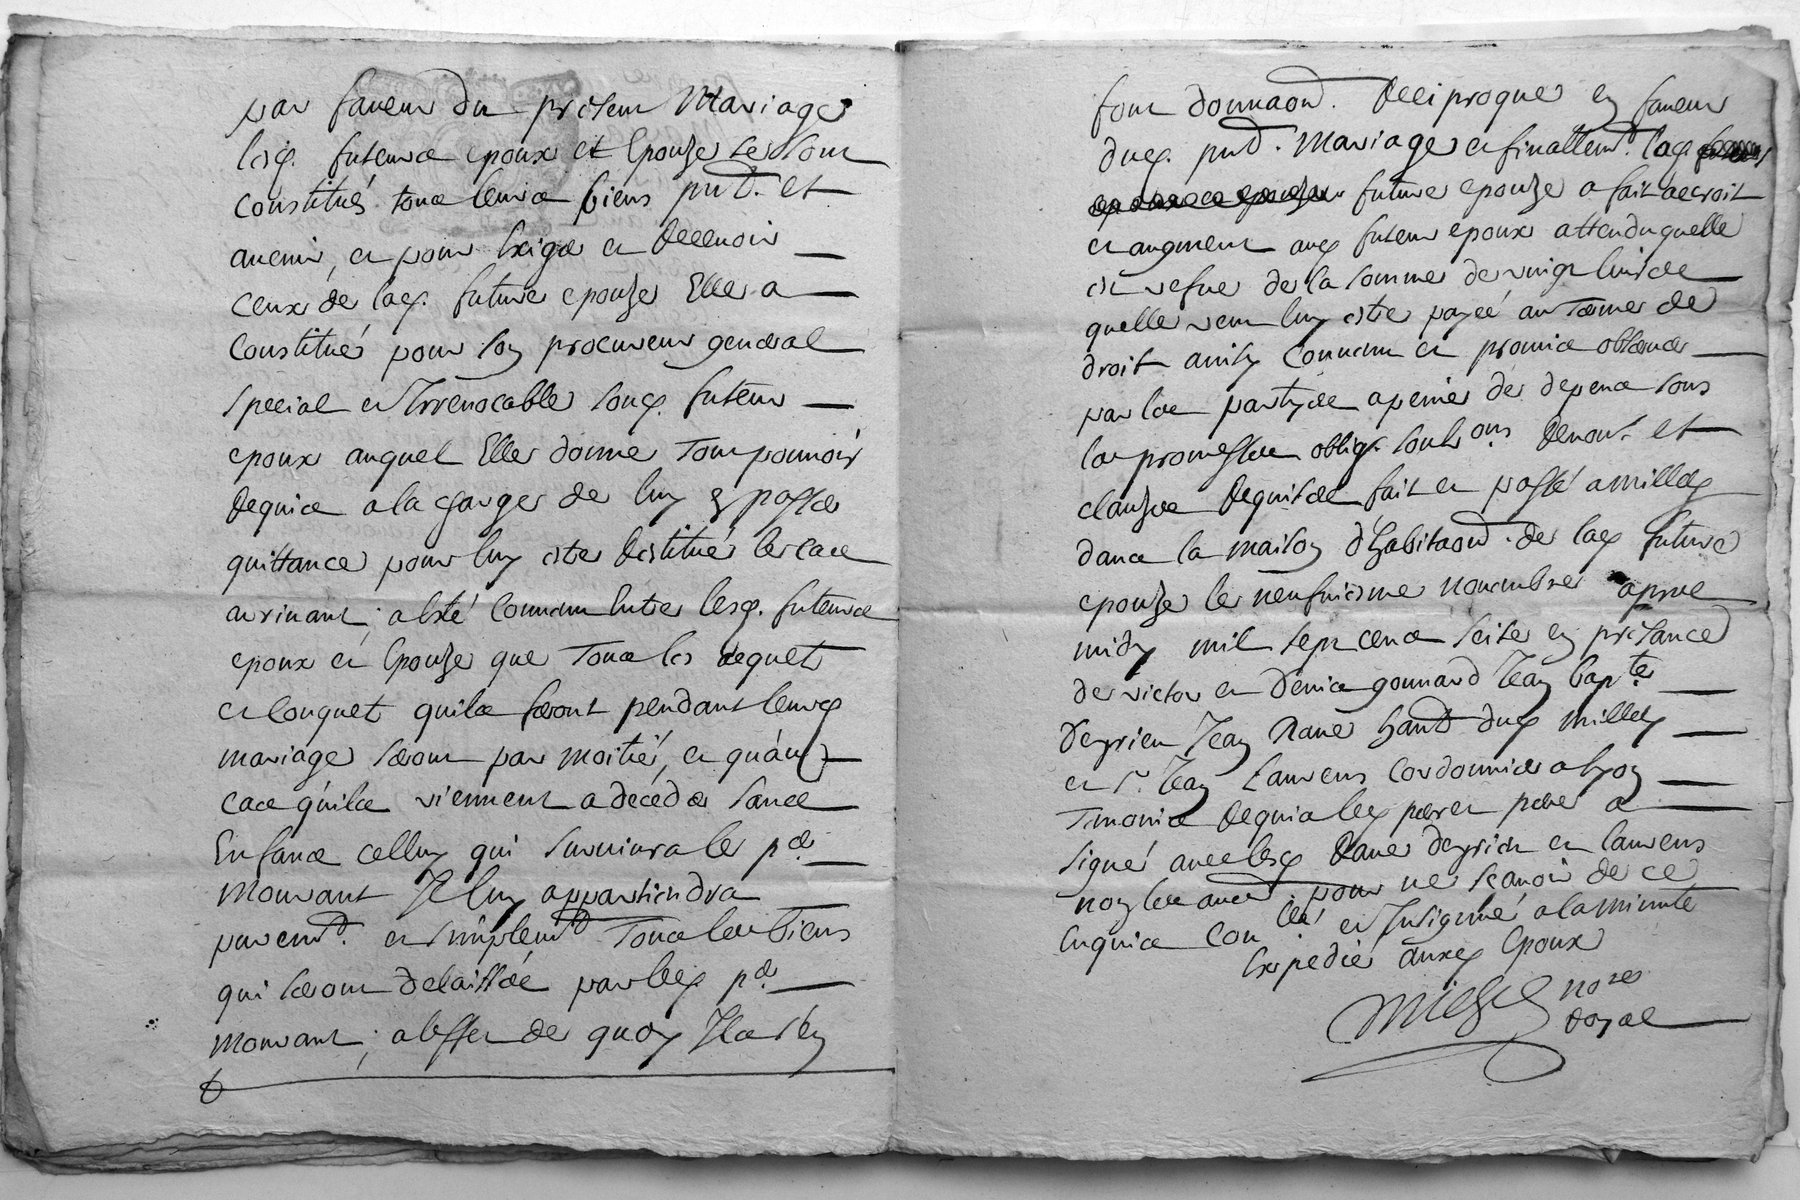 par faveur du present Mariage
lesd. futurs epoux et Epouze se sont
constitués tous leurs biens pnt. et
avenir, et pour Exiger et Recevoir
ceux de lad. future epouze Elle a
Constitué pour son procureur general
special et Irrevocable sond. futeur
epoux auquel Elle donne Tout pouvoir
Requis a la charge de luy en passer
quittance pour luy estre Restitués le cas
arrivant; a Esté Convenu Entre lesd. futeurs
epoux et Epouze que Tous les acquets
et Conquets quils feront pendant leurd
mariage seront par moitié, et quánd
cas qúils viennent a deceder sans
Enfans celluy qui survivra le pr.
Mourant Il luy appartiendra
puremt. et simplemt Tous les biens
qui seront delaissés par led pr.
Mourant; a leffet de quoy Ils s'en
font donnaon. Reciproque en faveur
dud. pnt. Mariage et finallemt. lad.
future epouze a fait accroit
et augment aud futeur epoux attendu quelle
est vefve de la somme de vingt livres
quelle veut luy estre payée au Terme de
droit ainsy Convenu et promis observer
par les partyes a peine de depens sous
les promesses oblig. soubs ons Renon. et
clauzes Requises fait et passé a millery
dans la maison d'habitaon. de lad future
epouze le neufviesme novembre apres
midy mil sept cens seize en presance
de victor et Denis gonnard Jean bapte.
Deyrieu Jean Rave habt dud millery
et sr. Jean Laurens Cordonnier a lyon
Tmoins Requis led pere et pere a
signé avec lesd Rave deyrieu et laurens
non les autres pour ne scavoir de ce
Enquis Con lé et Insigniné a la minute
Expedié auxd Epoux
nore
Royal